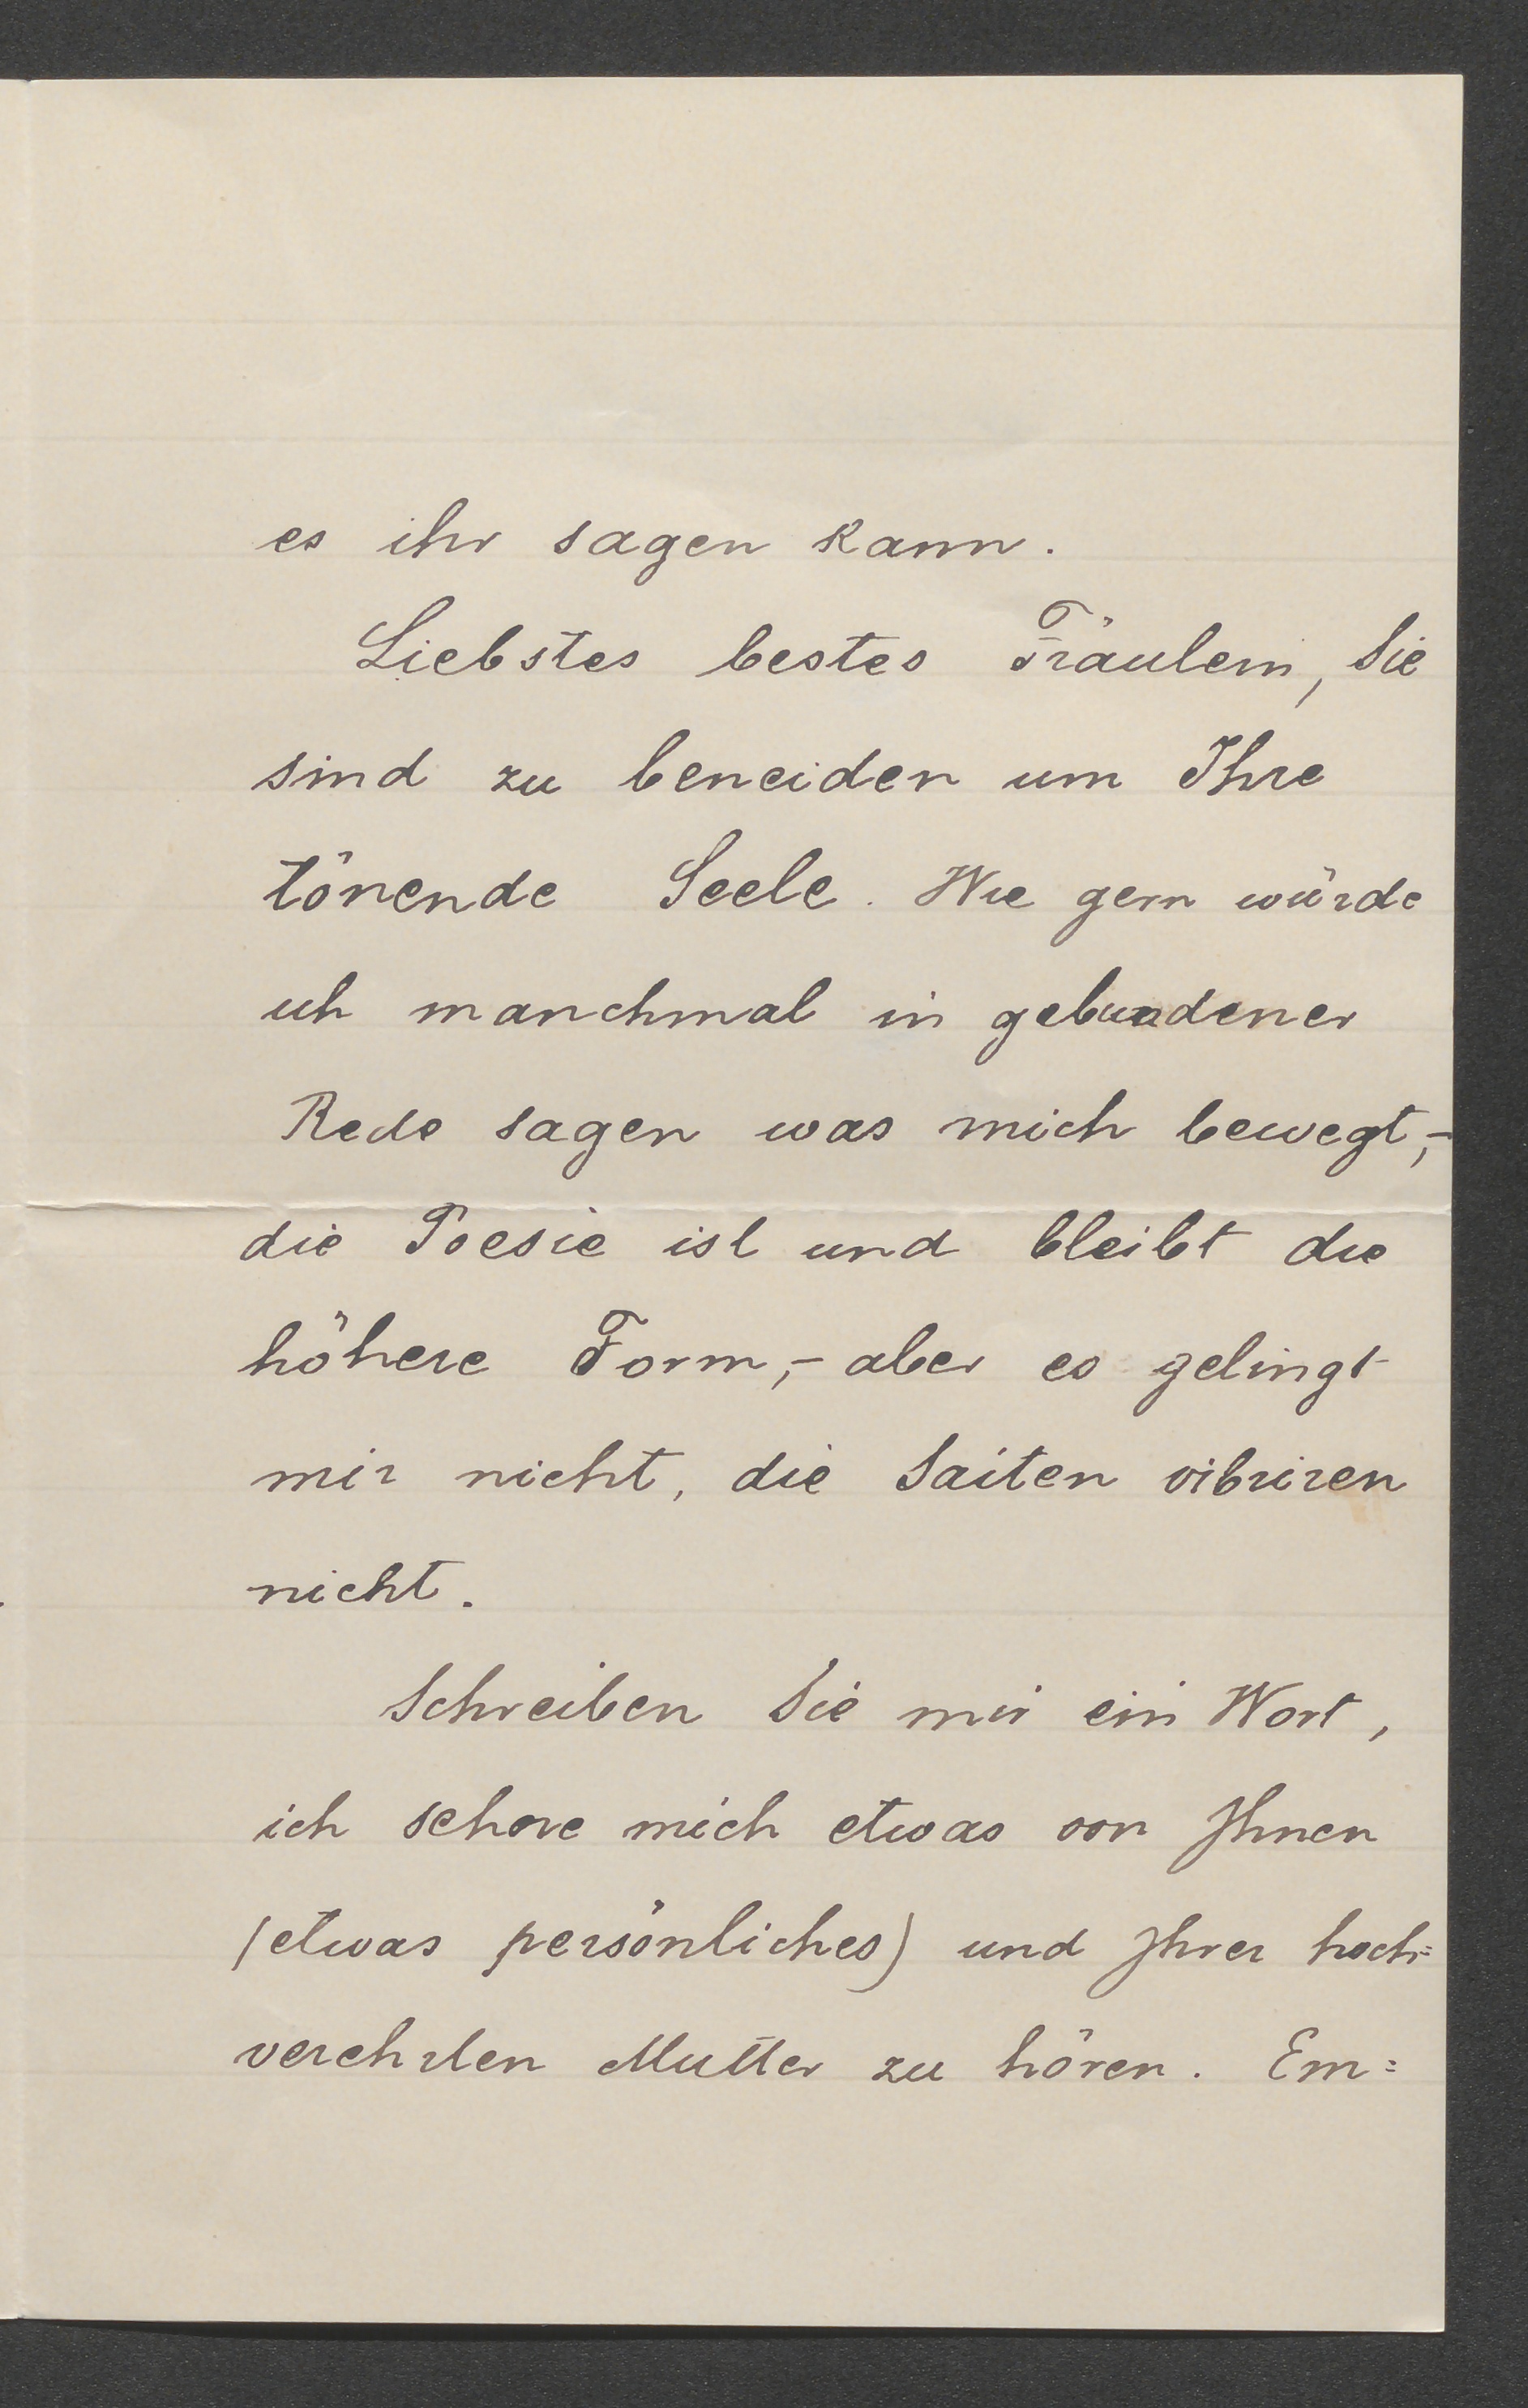 es ihr sagen kann.
Liebstes bestes Fräulein, Sie
sind zu beneiden um Ihre
tönende Seele. Wie gern würde
ich manchmal in gebundener
Rede sagen was mich bewegt,-
die Poesie ist und bleibt die
höhere Form,- aber es gelingt
mir nicht, die Saiten vibriren
nicht.
Schreiben Sie mir ein Wort,
ich sehne mich etwas von Ihnen
(etwas persönliches) und Ihrer hoch=
verehrten Mutter zu hören. Em=